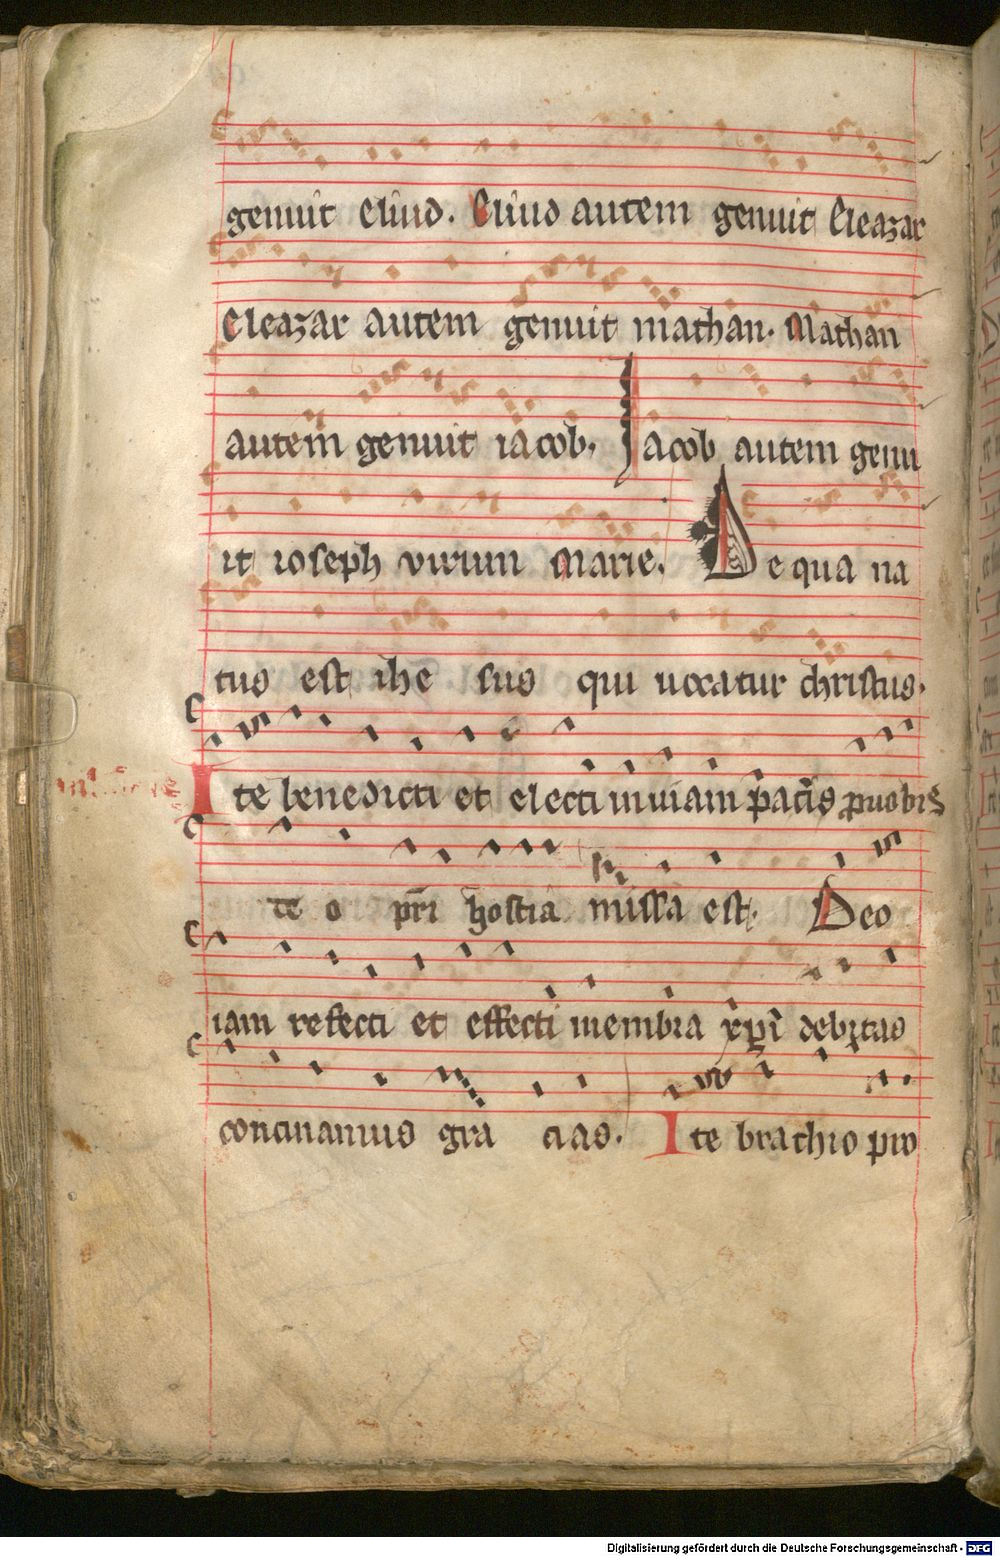 genuit eliud. Eliud autem genuit Eleazar
Eleazar autem genuit mathan. Mathan
autem genuit iacob. Iacob autem genu
it ioseph virum Marie. De qua na
tus est ihe sus qui uocatur christus.
Ite benedicti et electi in uiam pacis pro uobis
te o pri hostia missa est. Deo
iam refecti et effecti membra xpi debitas
concinamus gra cias. Ite brachio pro
Digitalisierung gefördert durch die Deutsche Forschungsgemeinschaft - DFG